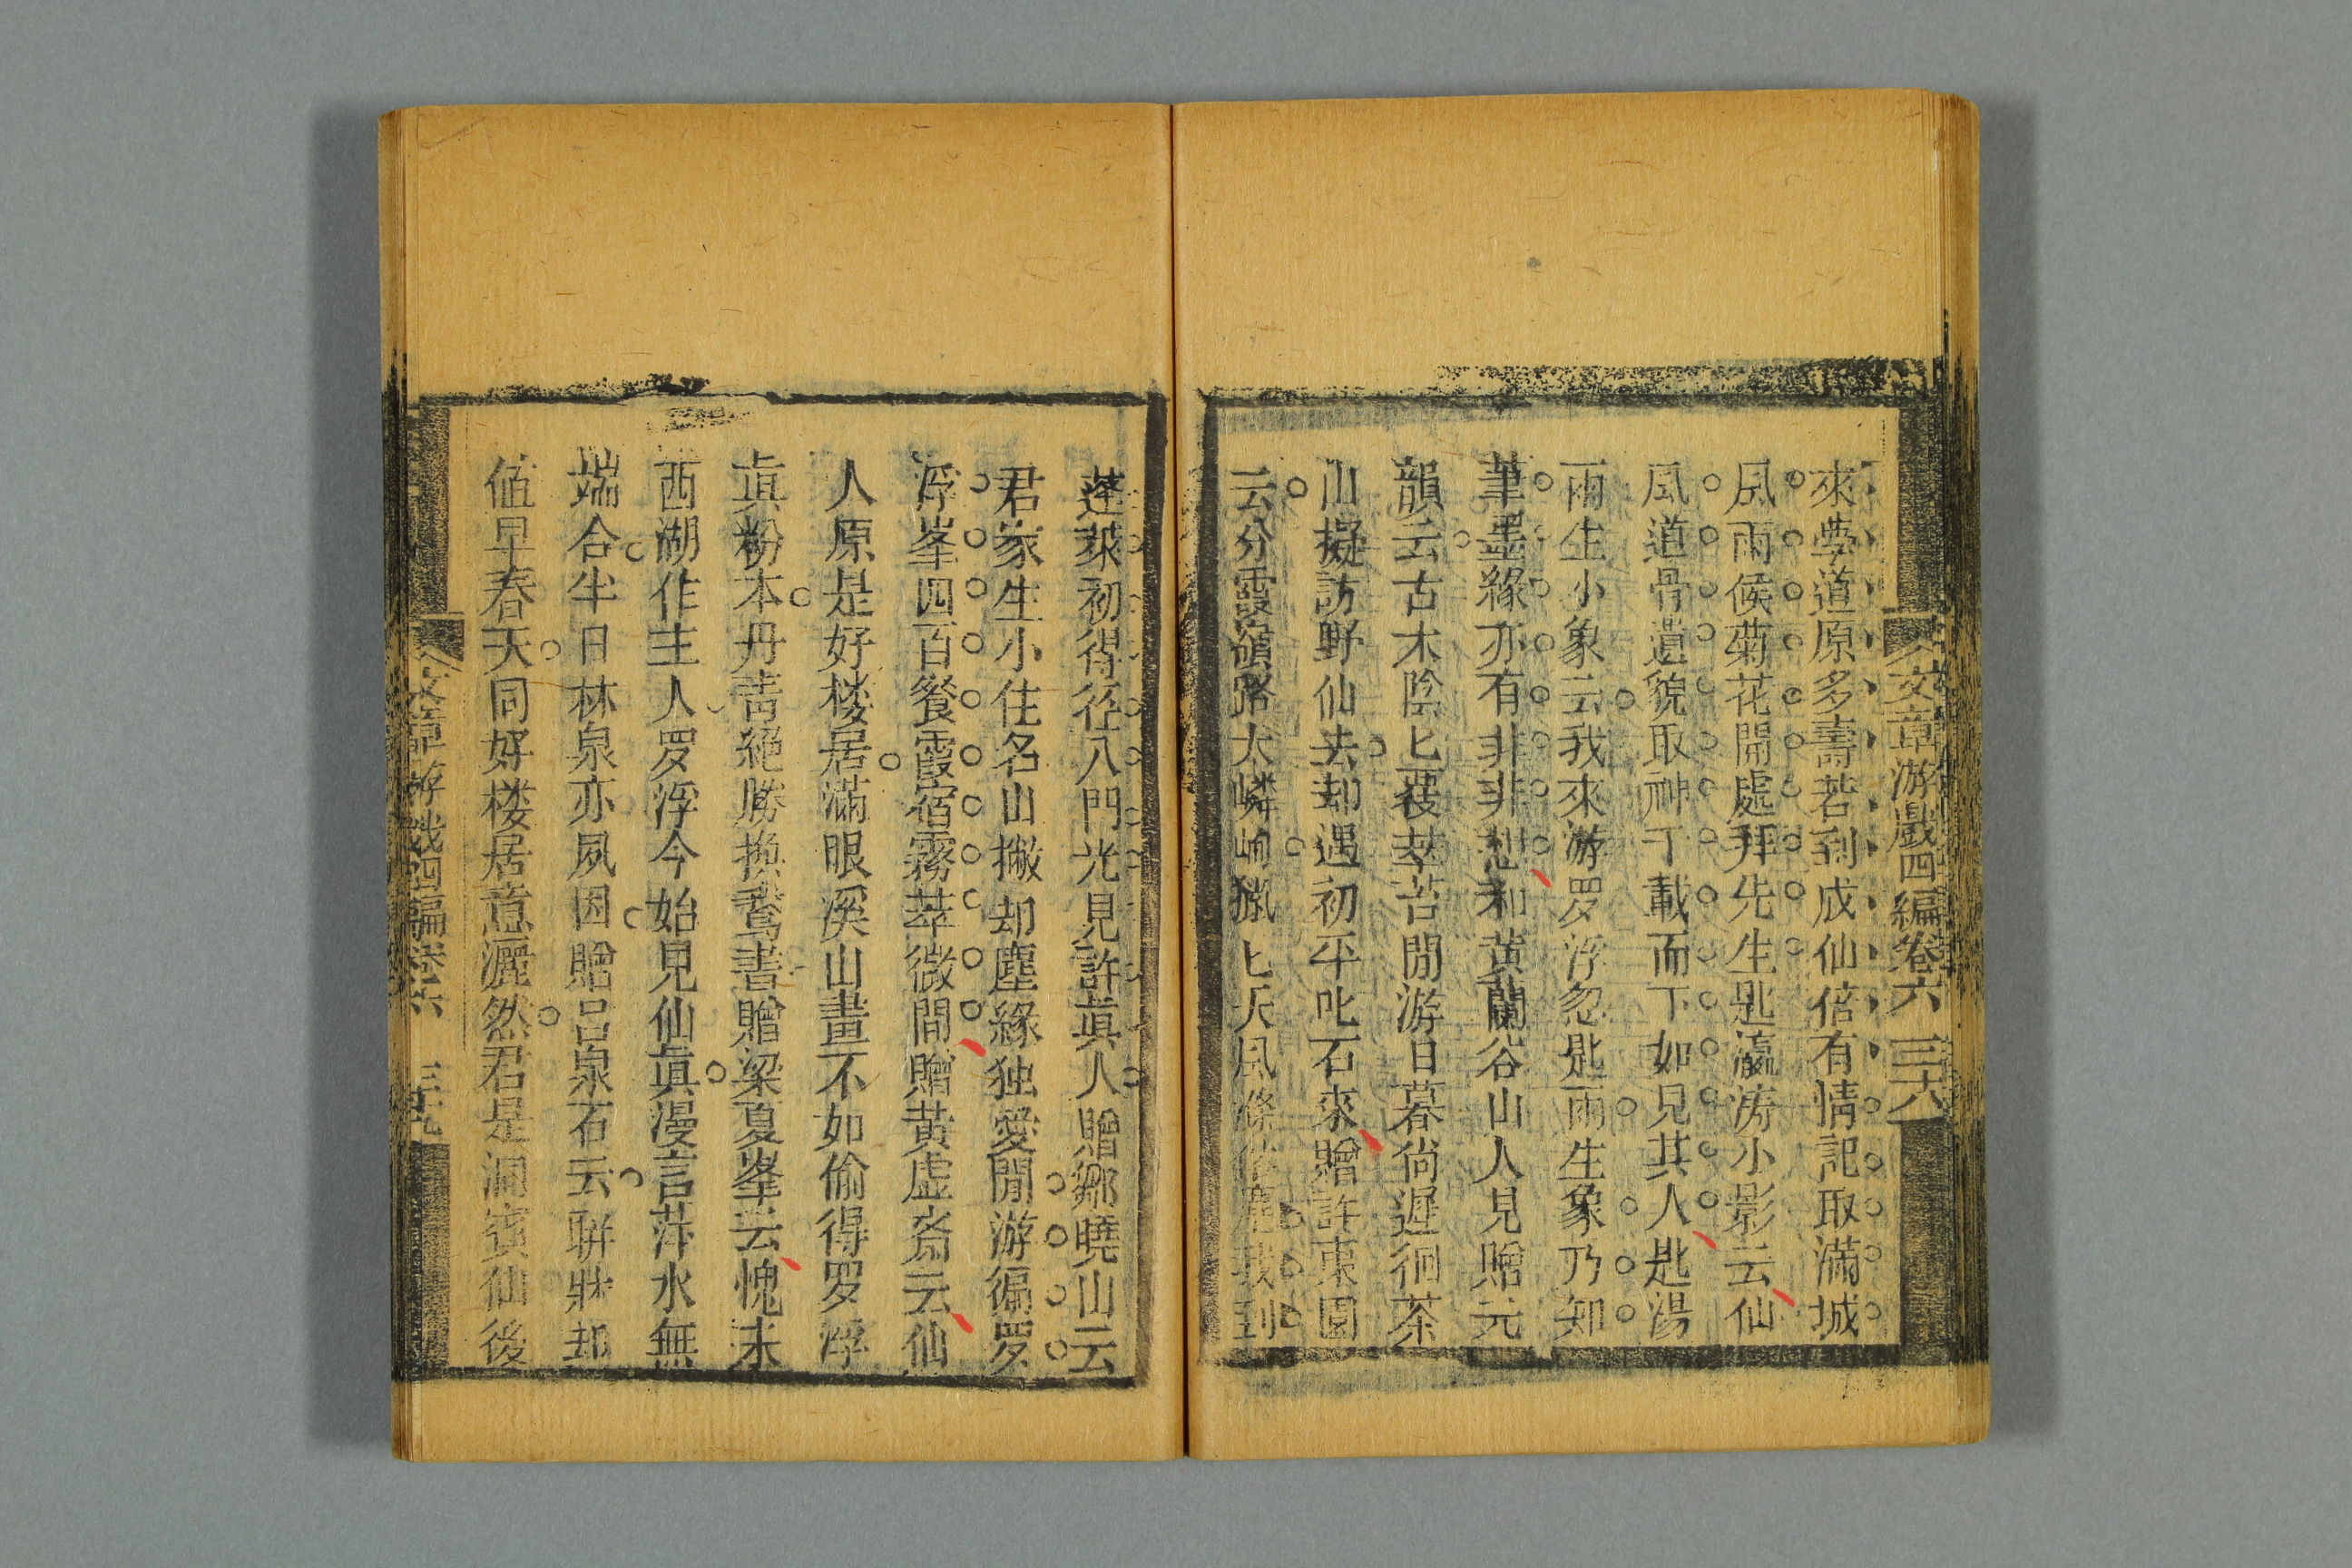 文章游戲四編卷六 三六
來夢道原多壽若到成仙倍有情記取滿城
風雨候菊花開處拜先生題瀛濤小影云仙
風道骨遺貌取神丁載而下如見其人題湯
雨生小象云我來游罗浮忽題雨生象乃知
筆墨緣亦有非非想和黃蘭谷山人見贈元
韻云古木陰匕裝莘苦閒游日暮尙遲徊茶
山擬訪野仙去却遇初平叱石來贈許東園
云分霞嶺路太嶙峋獵匕天風 我到
蓬萊初得徑八門光見許眞人贈鄉曉山云
君家生小住名山撇却塵緣独愛閒游徧罗
浮峯四百餐霞宿霧萃微間贈黃虛嵛云仙
人原是好楼居滿眼溪山畫不如偷得罗浮
眞粉本丹靑絕勝換鵞書贈梁夏峯云愧未
西湖作主人罗浮今始見仙眞漫言萍水無
端合半日林泉亦夙因贈呂泉石云聯牀却
値早春天同好楼居意灑然君是洞賓仙後
文章游戲四編卷六